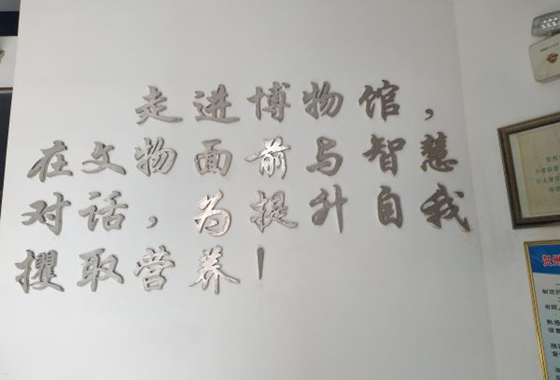 走进博物馆，
在文物面前与智慧
对话，为提升自我
攫取营养！
贺州